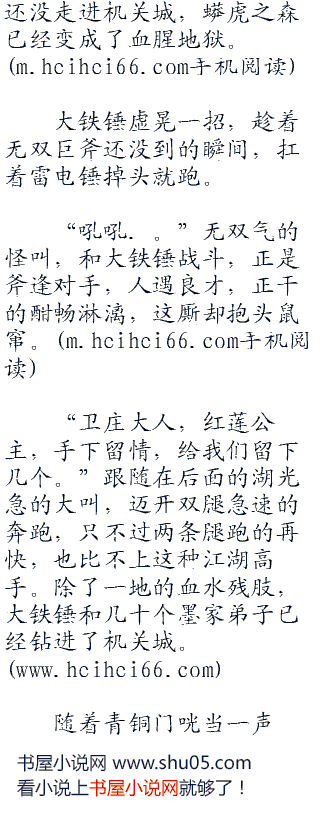 还没走进机关城，蟒虎之森
已经变成了血腥地狱。
(m.hcihci66.com手机阅读)
大铁锤虚晃一招，趁着
无双巨斧还没到的瞬间，扛
着雷电锤掉头就跑。
“吼吼．。”无双气的
怪叫，和大铁锤战斗，正是
斧逢对手，人遇良才，正干
的酣畅淋漓，这厮却抱头鼠
窜。(m.hcihci66.com手机阅
读)
“卫庄大人，红莲公
主，手下留情，给我们留下
几个。”跟随在后面的湖光
急的大叫，迈开双腿急速的
奔跑，只不过两条腿跑的再
快，也比不上这种江湖高
手。除了一地的血水残肢，
大铁锤和几十个墨家弟子已
经钻进了机关城。
(www.hcihci66.com)
随着青铜门咣当一声
书屋小说网 www.shu05.com
看小说上书屋小说网就够了！